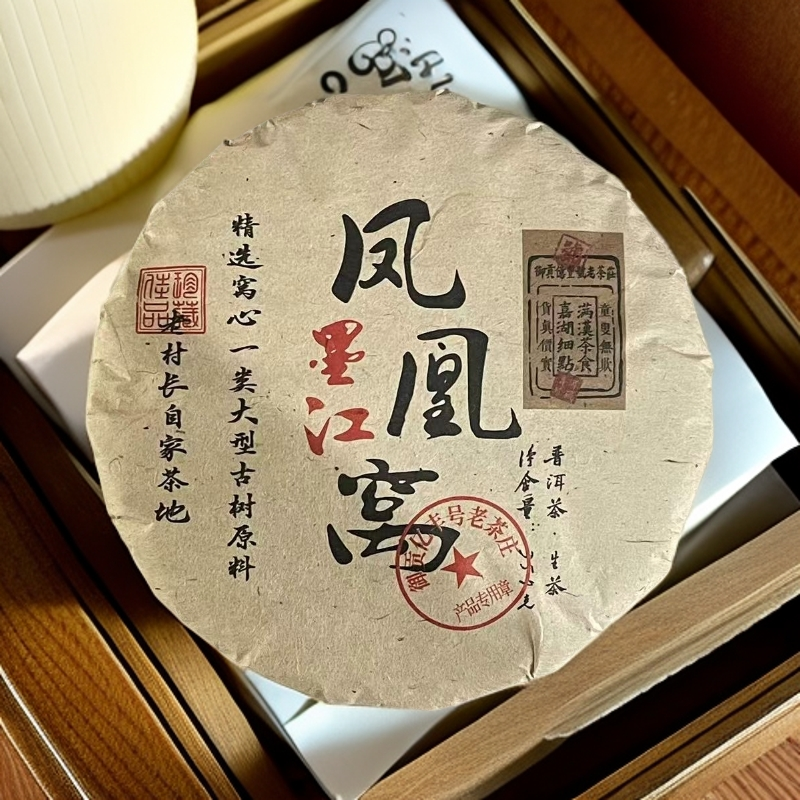 凤凰窝
墨江
精选窝心一类大型古树原料
老村长自家茶地
珍藏佳品
御貢億豐號老茶莊
童叟無欺
滿漢茶食
嘉湖细點
貨真價實
普洱茶·生茶
净含量：
号老茶庄
产品专用章